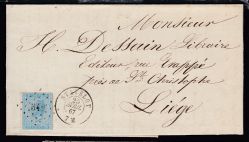 Monsieur
H. Dessain Libraire
Editeur, rue Trappé
près de St. Christophe
Liége